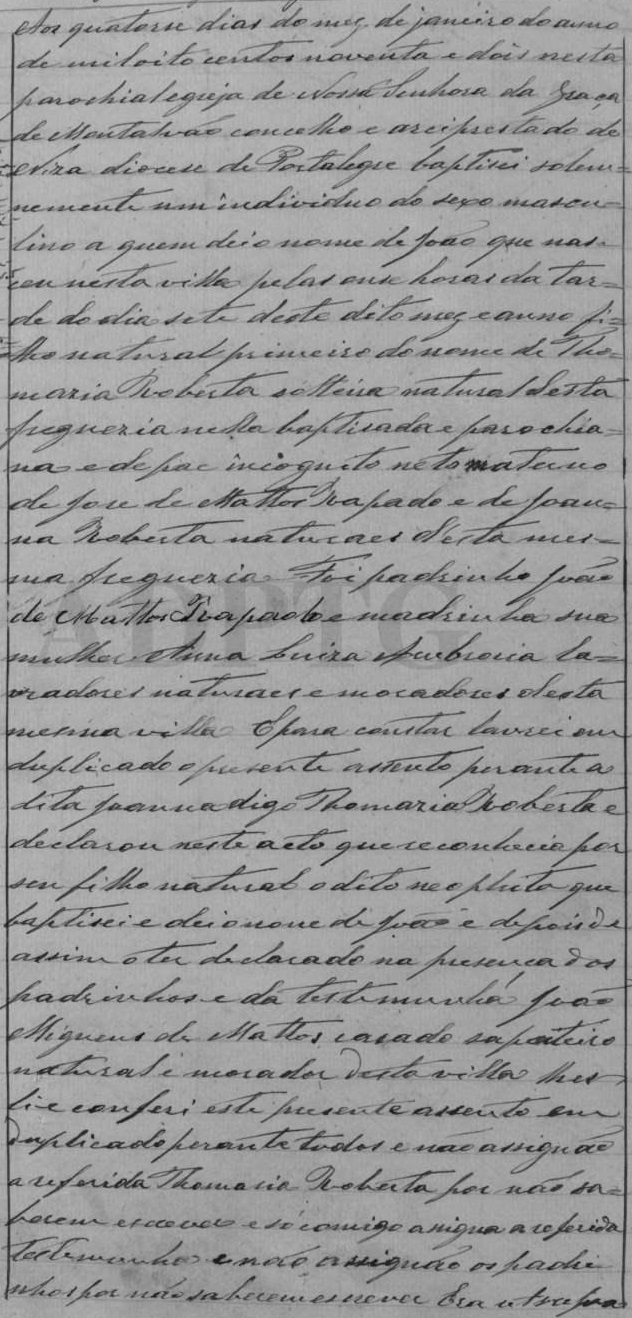 Aos quatorse dias do mez de janeiro do anno
de mil oito centos noventa e dois nesta
parochial egreja de Nossa Senhora da Graça
de Montalvão concelho e arciprestado de
Niza diocese de Portalegre baptisei solem=
nemente um individuo do sexo mascu=
lino a quem dei o nome de João que nas=
ceu nesta villa pelas onse horas da tar=
de do dia sete deste dito mez e anno fi=
lho natural primeiro do nome de Tho=
mazia Roberta solteira natural desta
freguezia nella baptisada e parochia=
na e de pae incognito neto materno
de Jose de Mattos Rapado e de Joan=
na Roberta naturaes desta mes=
ma freguezia Foi padrinho João
de Mattos Rapado e madrinha sua
mulher Anna Luiza Ambrosia la=
vradores naturaes e moradores desta
mesma villa E para constar lavrei em
duplicado o presente assento perante a
dita Joanna digo Thomazia Roberta e
declarou neste acto que reconhecia por
seu filho natural o dito neophito que
baptisei e dei o nome de João e depois de
assim o ter declarado na presença dos
padrinhos e da testemunha João
Migueus de Mattos casado sapateiro
natural e morador desta villa lhes
li e conferi este presente assento em
duplicado perante todos e não assignão
a referida Thomasia Roberta por não sa=
berem escrever e só comigo assigna a referida
testemunha e não assignão os padri
nhos por não saberem escrever Era ut supra
ADPTG